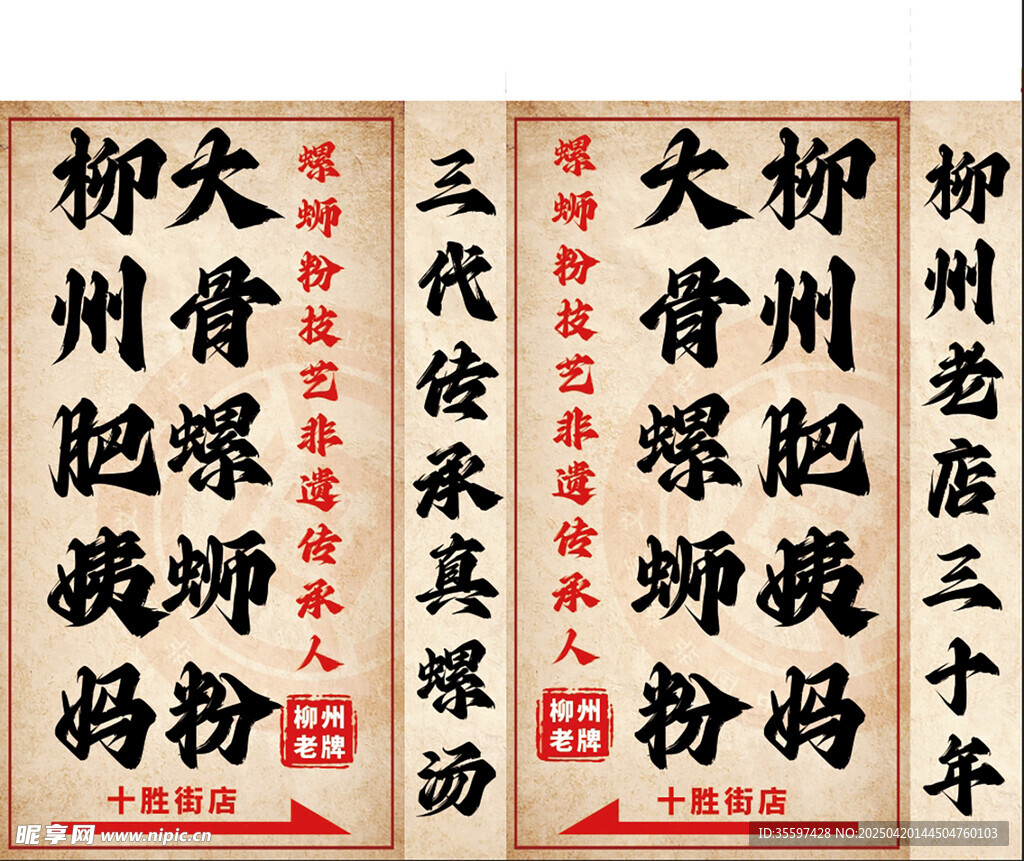 柳州肥姨妈
大骨螺蛳粉
螺蛳粉技艺非遗传承人
柳州
老牌
十胜街店
三代传承真螺汤
螺蛳粉技艺非遗传承人
大骨螺蛳粉
柳州肥姨妈
柳州
老牌
十胜街店
柳州老店三十年
昵享网 www.nipic.cn
ID:35597428 NO:20250420144504760103